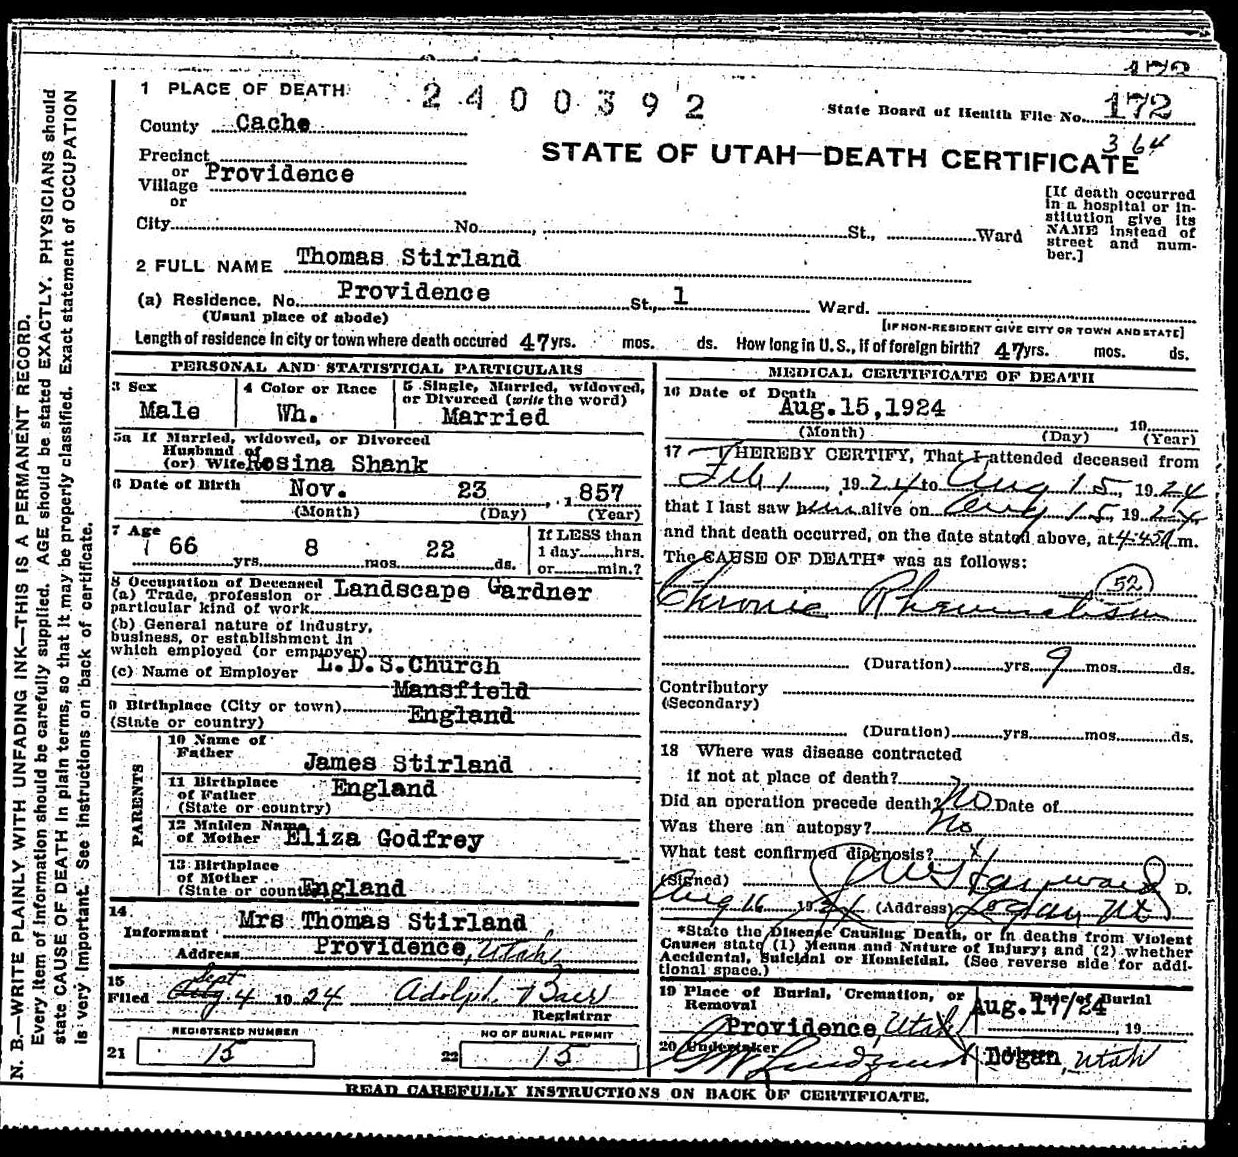 172
1 PLACE OF DEATH 2400392 State Board of Health File No. 172
364
County Cache
STATE OF UTAH—DEATH CERTIFICATE
Precinct
or
Village Providence
or
City No. , St., Ward
[If death occurred
in a hospital or in-
stitution give its
NAME instead of
street and num-
ber.]
2 FULL NAME Thomas Stirland
(a) Residence. No. Providence St., 1 Ward.
(Usual place of abode) [IF NON-RESIDENT GIVE CITY OR TOWN AND STATE]
Length of residence in city or town where death occured 47 yrs. mos. ds. How long in U. S., if of foreign birth? 47 yrs. mos. ds.
PERSONAL AND STATISTICAL PARTICULARS
3 Sex
Male
4 Color or Race
Wh.
5 Single, Married, widowed,
or Divorced (write the word)
Married
5a If Married, widowed, or Divorced
Husband of
(or) Wife Rosina Shank
6 Date of Birth Nov. 23 , 1857
(Month) (Day) (Year)
7 Age
66 yrs. 8 mos. 22 ds.
If LESS than
1 day hrs.
or min.?
8 Occupation of Deceased
(a) Trade, profession or Landscape Gardner
particular kind of work
(b) General nature of industry,
business, or establishment in
which employed (or employer)
(c) Name of Employer L.D.S.Church
Mansfield
9 Birthplace (City or town)
(State or country) England
PARENTS
10 Name of
Father James Stirland
11 Birthplace
of Father England
(State or country)
12 Maiden Name
of Mother Eliza Godfrey
13 Birthplace
of Mother
(State or country) England
14
Informant Mrs Thomas Stirland
Address Providence, Utah
15 Sept
Filed Aug 4 1924 Adolph Baer
Registrar
REGISTERED NUMBER NO OF BURIAL PERMIT
21 15 22 15
MEDICAL CERTIFICATE OF DEATH
16 Date of Death
Aug.15,1924 , 19
(Month) (Day) (Year)
17 I HEREBY CERTIFY, That I attended deceased from
Feb 1 , 1924 to Aug 15, 1924
that I last saw him alive on Aug 15, 1924
and that death occurred, on the date stated above, at 4:45 m.
The CAUSE OF DEATH* was as follows:
52
Chronic Rheumatism
(Duration) yrs. 9 mos. ds.
Contributory
(Secondary)
(Duration) yrs. mos. ds.
18 Where was disease contracted
if not at place of death?
Did an operation precede death? No Date of
Was there an autopsy? No
What test confirmed diagnosis?
(Signed) Hayward D.
Aug 16 1924 (Address) Logan Ut
*State the Disease Causing Death, or in deaths from Violent
Causes state (1) Means and Nature of Injury; and (2) whether
Accidental, Suicidal or Homicidal. (See reverse side for addi-
tional space.)
19 Place of Burial, Cremation, or
Removal
Providence, Utah
Date of Burial
Aug.17/24
, 19
20 Undertaker
Logan, Utah
READ CAREFULLY INSTRUCTIONS ON BACK OF CERTIFICATE.
N. B.—WRITE PLAINLY WITH UNFADING INK—THIS IS A PERMANENT RECORD.
Every item of information should be carefully supplied. AGE should be stated EXACTLY. PHYSICIANS should
state CAUSE OF DEATH in plain terms, so that it may be properly classified. Exact statement of OCCUPATION
is very important. See instructions on back of certificate.